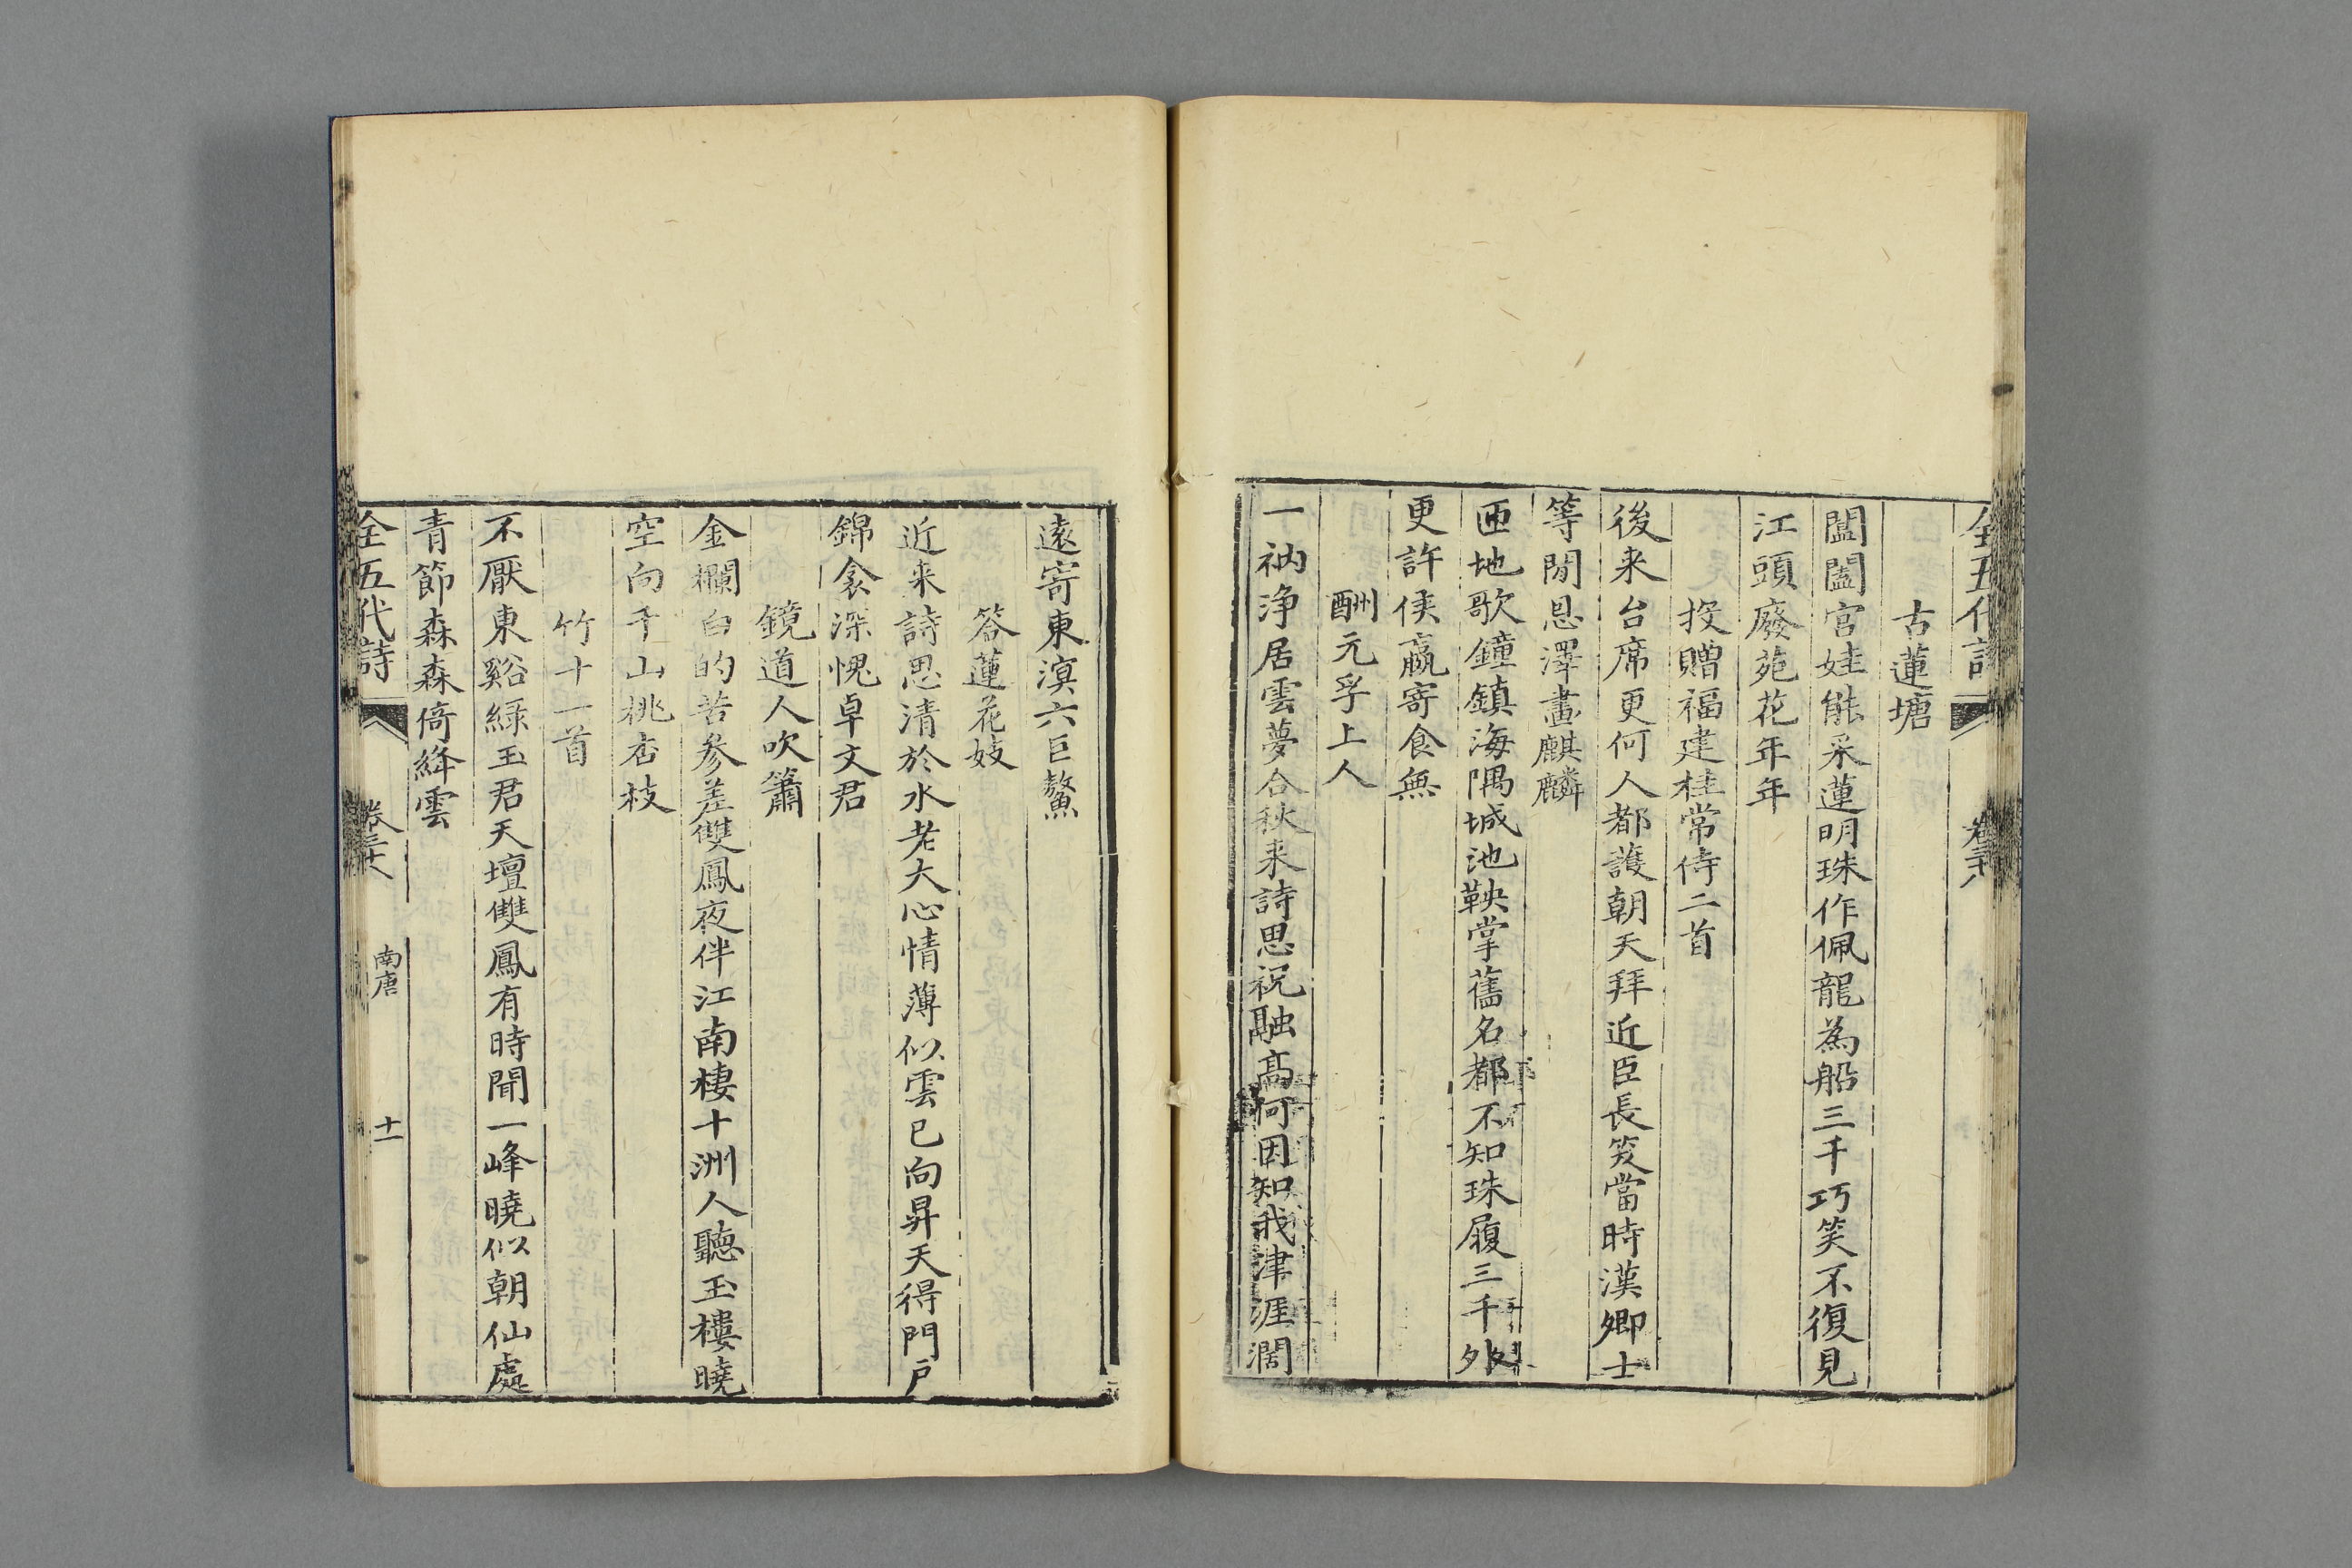 全五代詩
卷三十八
古蓮塘
闔閭宮娃能采蓮明珠作佩龍為船三千巧笑不復見
江頭廢苑花年年
投贈福建桂常侍二首
後来台席更何人都護朝天拜近臣長笑當時漢卿士
等閒恩澤畫麒麟
匝地歌鐘鎮海隅城池鞅掌舊名都不知珠履三千外
更許侯嬴寄食無
酬元孚上人
一衲淨居雲夢合秋来詩思祝融高何因知我津涯濶
遠寄東溟六巨鰲
答蓮花妓
近来詩思清於水老大心情薄似雲已向昇天得門戶
錦衾深愧卓文君
鏡道人吹簫
金欄白的苦參差雙鳳夜伴江南棲十洲人聽玉樓曉
空向千山桃杏枝
竹十一首
不厭東谿綠玉君天壇雙鳳有時聞一峰曉似朝仙處
青節森森倚絳雲
全五代詩
卷三十八
南唐
十一